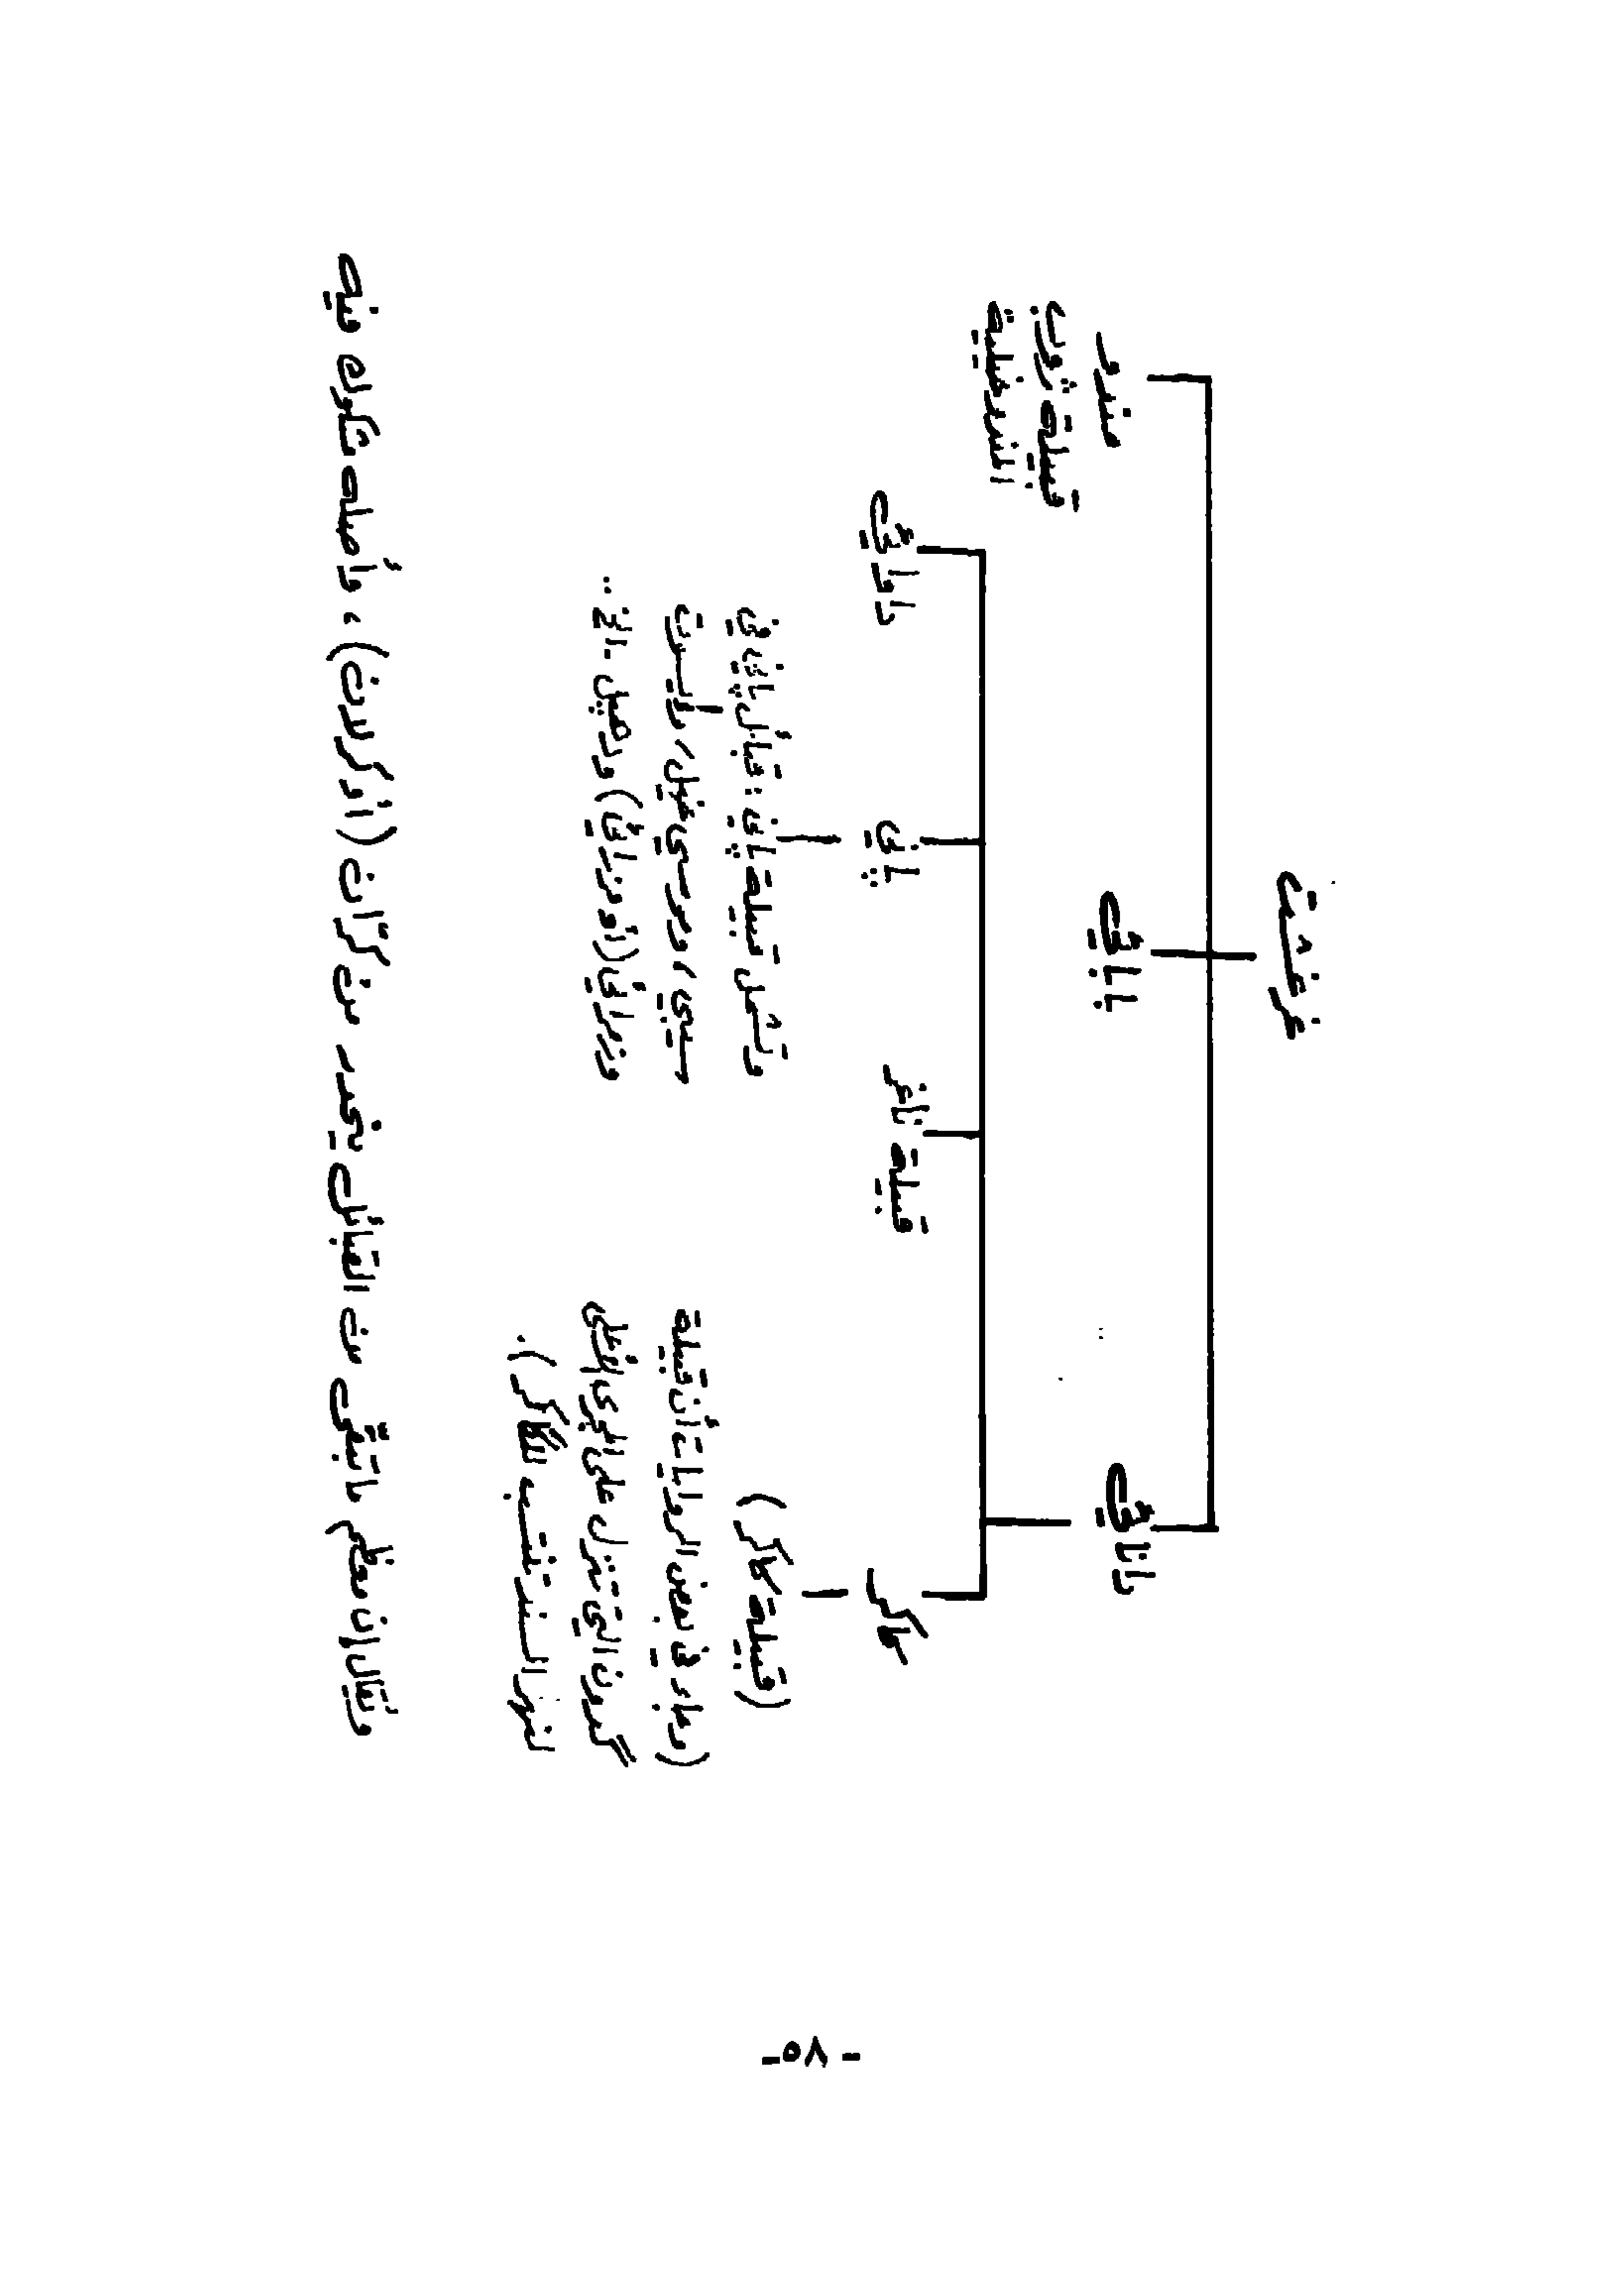 غرغشت
داناڨي
باباڨي
مندو
قبيلة ثوب
الشيرخيلية
كاكر
قبيلة ناغر
پاني
داواڨي
(قبيلة كاكر)
(وجاء في بعض الروايات أن قبيلة
گدون التي تنزل على المجرى الأعلى
لنهر السند تنتسب لكاكر).
وتشمل قبيلة پاني: قبائل پاني في
سيبي، وموسى خيل،
وزمراني (أو مزراني) و . الخ ..
ويقال إن معظم ما تبقى من القبائل ينحدر من كرّان (أو كرلان)، وأصله مشكوك فيه
- ٥٨ -